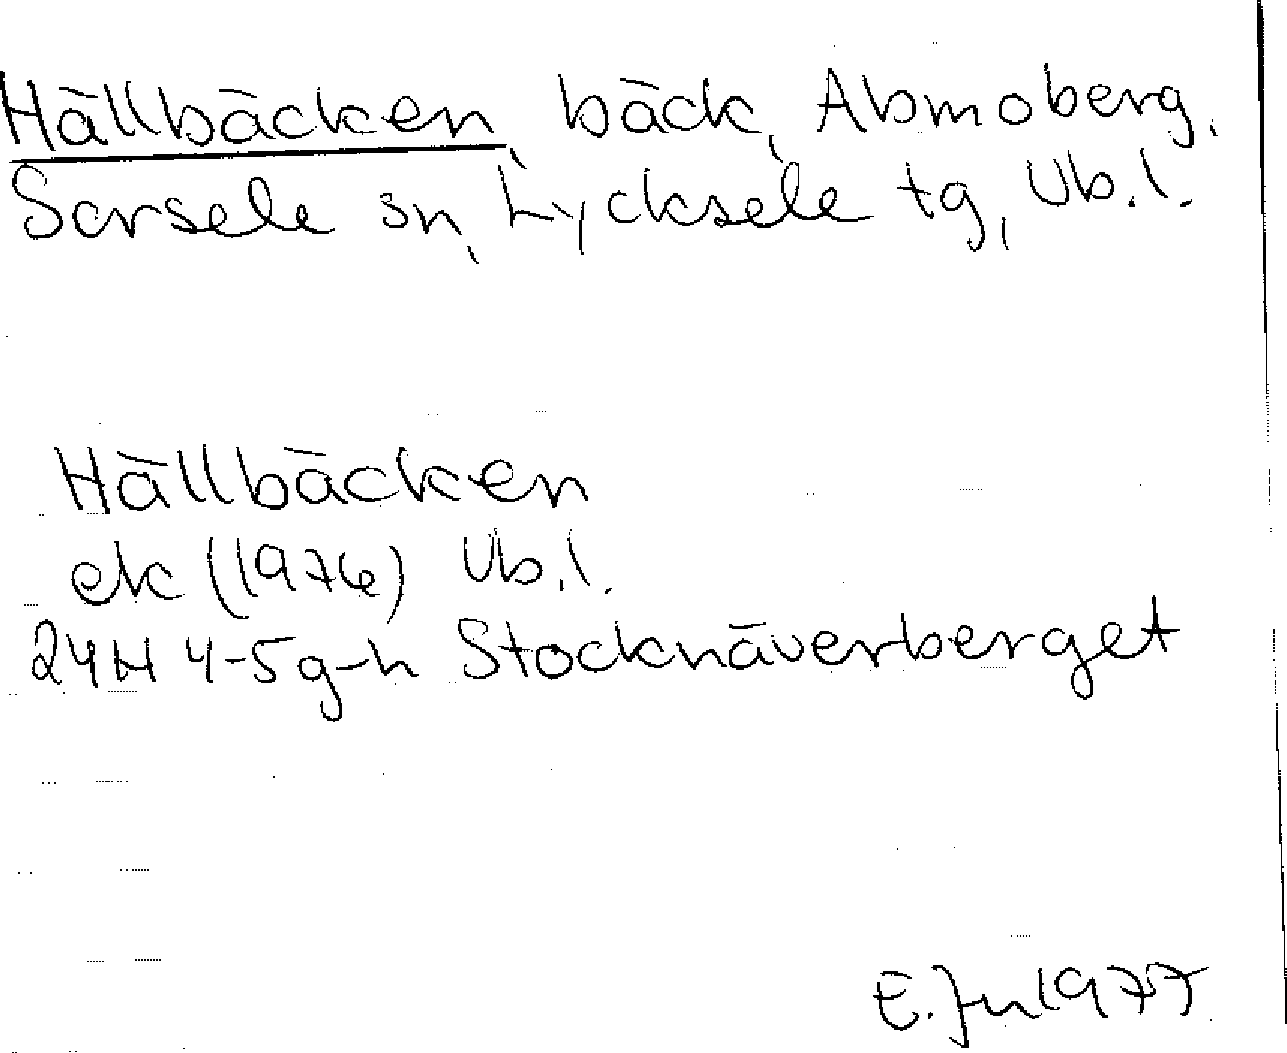 Hällbäcken, bäck, Abmoberg.
Sorsele sn, Lycksele tg, Vb.l.
Hällbäcken
ek (1976) Vb.l.
24H 4-5g-h Stocknäverberget
E. Jn 1977